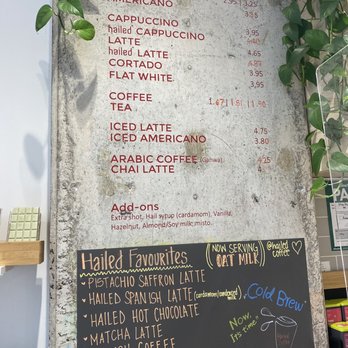 AMERICANO 2.95 3.25
CAPPUCCINO
hailed CAPPUCCINO 3.95
LATTE
hailed LATTE 4.65
CORTADO
FLAT WHITE 3.95
COFFEE
TEA
ICED LATTE 4.75
ICED AMERICANO 3.80
ARABIC COFFEE (Qahwa) 4.25
CHAI LATTE 4
Add-ons
Extra shot, Hail syrup (cardamom), Vanilla,
Hazelnut, Almond/Soy milk, misto.
Hailed Favourites
NOW SERVING
OAT MILK
@hailed
coffee
PISTACHIO SAFFRON LATTE
HAILED SPANISH LATTE (cardamom/condensed milk)
HAILED HOT CHOCOLATE
MATCHA LATTE
COFFEE
Cold Brew
Now,
It's time